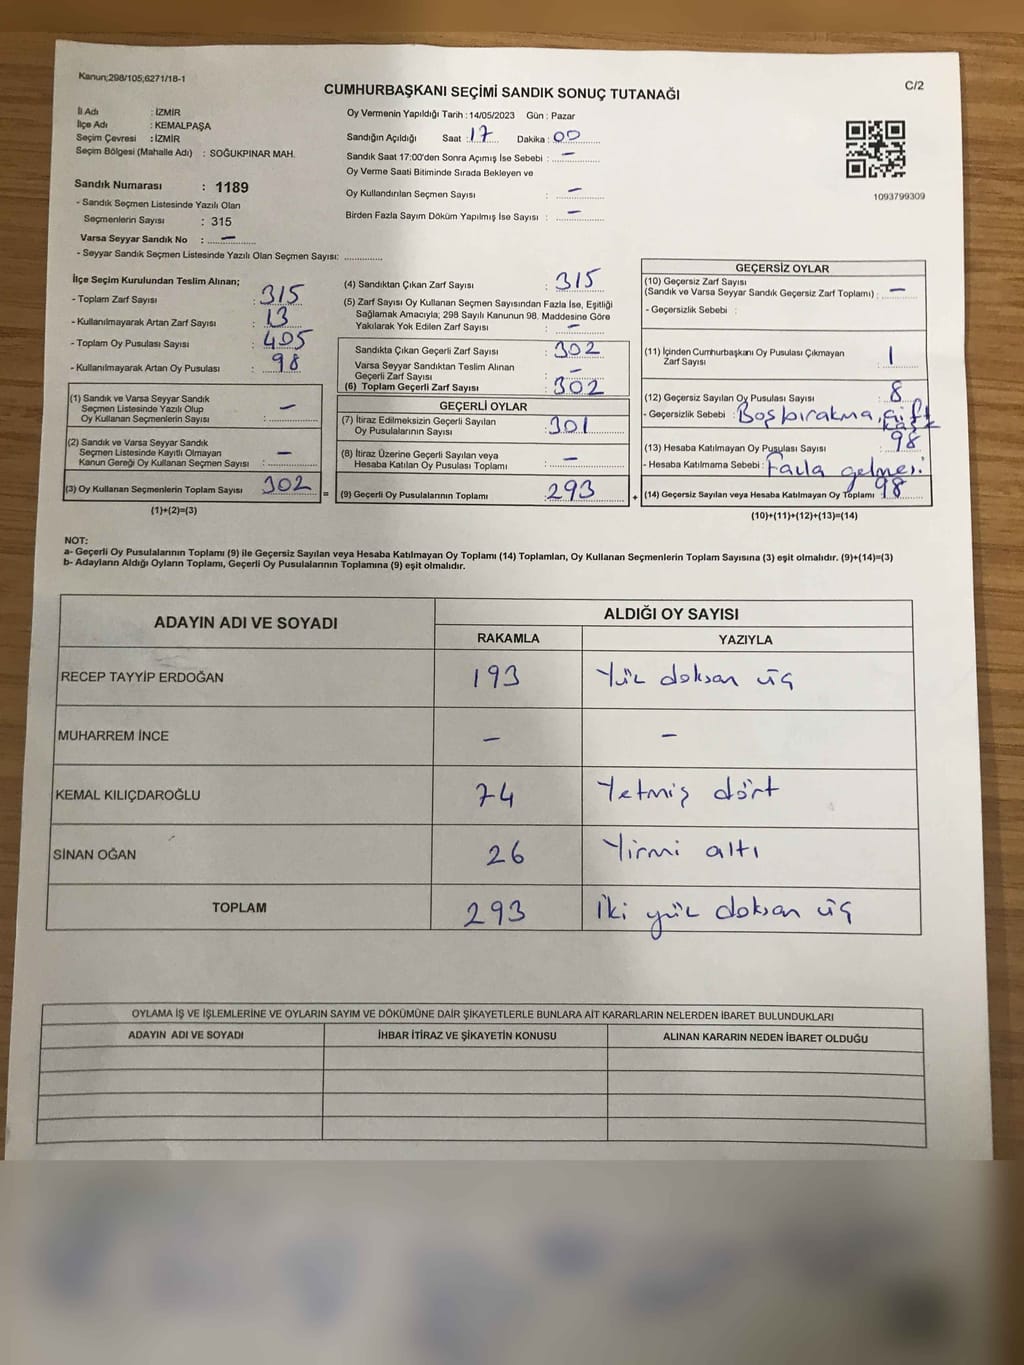 Kanun;298/105;6271/18-1
CUMHURBAŞKANI SEÇİMİ SANDIK SONUÇ TUTANAĞI
C/2
İl Adı : İZMİR
İlçe Adı : KEMALPAŞA
Seçim Çevresi : İZMİR
Seçim Bölgesi (Mahalle Adı) : SOĞUKPINAR MAH.
Sandık Numarası : 1189
- Sandık Seçmen Listesinde Yazılı Olan
Seçmenlerin Sayısı : 315
Varsa Seyyar Sandık No : –
- Seyyar Sandık Seçmen Listesinde Yazılı Olan Seçmen Sayısı: ............
Oy Vermenin Yapıldığı Tarih : 14/05/2023 Gün : Pazar
Sandığın Açıldığı Saat : 17 Dakika : 00
Sandık Saat 17:00'den Sonra Açımış İse Sebebi : –
Oy Verme Saati Bitiminde Sırada Bekleyen ve
Oy Kullandırılan Seçmen Sayısı : –
Birden Fazla Sayım Döküm Yapılmış İse Sayısı : –
1093799309
İlçe Seçim Kurulundan Teslim Alınan;
- Toplam Zarf Sayısı : 315
- Kullanılmayarak Artan Zarf Sayısı : 13
- Toplam Oy Pusulası Sayısı : 405
- Kullanılmayarak Artan Oy Pusulası : 98
(1) Sandık ve Varsa Seyyar Sandık
Seçmen Listesinde Yazılı Olup
Oy Kullanan Seçmenlerin Sayısı : –
(2) Sandık ve Varsa Seyyar Sandık
Seçmen Listesinde Kayıtlı Olmayan
Kanun Gereği Oy Kullanan Seçmen Sayısı : –
(3) Oy Kullanan Seçmenlerin Toplam Sayısı 302
(1)+(2)=(3)
=
(4) Sandıktan Çıkan Zarf Sayısı : 315
(5) Zarf Sayısı Oy Kullanan Seçmen Sayısından Fazla İse, Eşitliği
Sağlamak Amacıyla; 298 Sayılı Kanunun 98. Maddesine Göre
Yakılarak Yok Edilen Zarf Sayısı : –
Sandıkta Çıkan Geçerli Zarf Sayısı : 302
Varsa Seyyar Sandıktan Teslim Alınan
Geçerli Zarf Sayısı : –
(6) Toplam Geçerli Zarf Sayısı : 302
GEÇERLİ OYLAR
(7) İtiraz Edilmeksizin Geçerli Sayılan
Oy Pusulalarının Sayısı : 301
(8) İtiraz Üzerine Geçerli Sayılan veya
Hesaba Katılan Oy Pusulası Toplamı : –
(9) Geçerli Oy Pusulalarının Toplamı : 293
+
GEÇERSİZ OYLAR
(10) Geçersiz Zarf Sayısı
(Sandık ve Varsa Seyyar Sandık Geçersiz Zarf Toplamı) : –
- Geçersizlik Sebebi :
(11) İçinden Cumhurbaşkanı Oy Pusulası Çıkmayan
Zarf Sayısı : 1
(12) Geçersiz Sayılan Oy Pusulası Sayısı : 8
- Geçersizlik Sebebi : Boş bırakma, çift
(13) Hesaba Katılmayan Oy Pusulası Sayısı : 98
- Hesaba Katılmama Sebebi : Fazla gelmesi
(14) Geçersiz Sayılan veya Hesaba Katılmayan Oy Toplamı : 98
(10)+(11)+(12)+(13)=(14)
NOT:
a- Geçerli Oy Pusulalarının Toplamı (9) ile Geçersiz Sayılan veya Hesaba Katılmayan Oy Toplamı (14) Toplamları, Oy Kullanan Seçmenlerin Toplam Sayısına (3) eşit olmalıdır. (9)+(14)=(3)
b- Adayların Aldığı Oyların Toplamı, Geçerli Oy Pusulalarının Toplamına (9) eşit olmalıdır.
ADAYIN ADI VE SOYADI
ALDIĞI OY SAYISI
RAKAMLA YAZIYLA
RECEP TAYYİP ERDOĞAN 193 Yüz doksan üç
MUHARREM İNCE – –
KEMAL KILIÇDAROĞLU 74 Yetmiş dört
SİNAN OĞAN 26 Yirmi altı
TOPLAM 293 İki yüz doksan üç
OYLAMA İŞ VE İŞLEMLERİNE VE OYLARIN SAYIM VE DÖKÜMÜNE DAİR ŞİKAYETLERLE BUNLARA AİT KARARLARIN NELERDEN İBARET BULUNDUKLARI
ADAYIN ADI VE SOYADI İHBAR İTİRAZ VE ŞİKAYETİN KONUSU ALINAN KARARIN NEDEN İBARET OLDUĞU